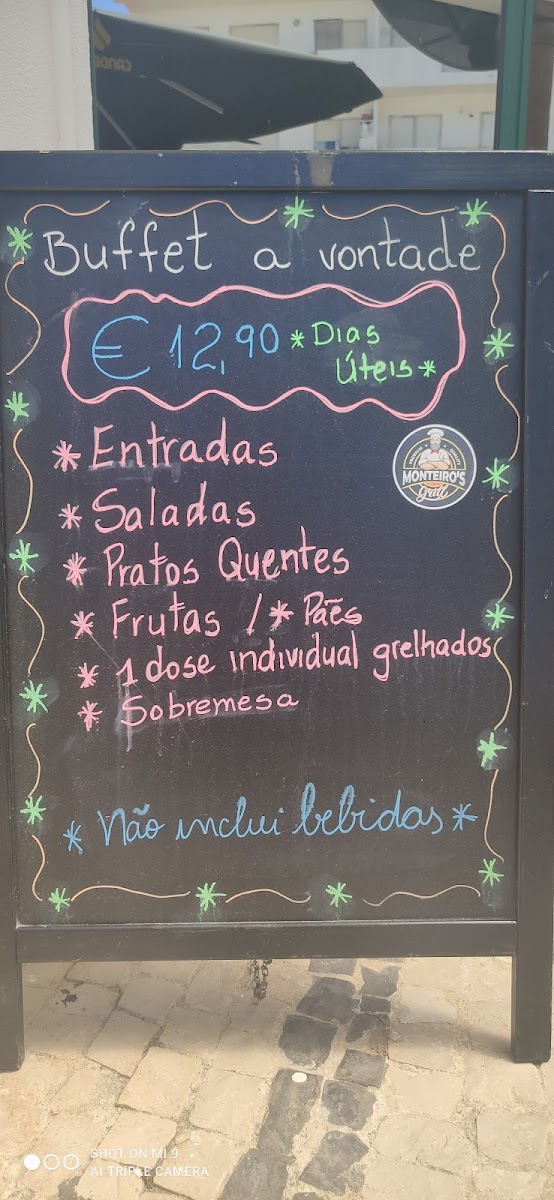 Buffet a vontade
€ 12,90 * Dias
Úteis *
* Entradas
* Saladas
* Pratos Quentes
* Frutas / * Pães
* 1 dose individual grelhados
* Sobremesa
PREMIUM QUALITY
MONTEIRO'S
Grill
* Não inclui bebidas *
SHOT ON MI 9
AI TRIPLE CAMERA